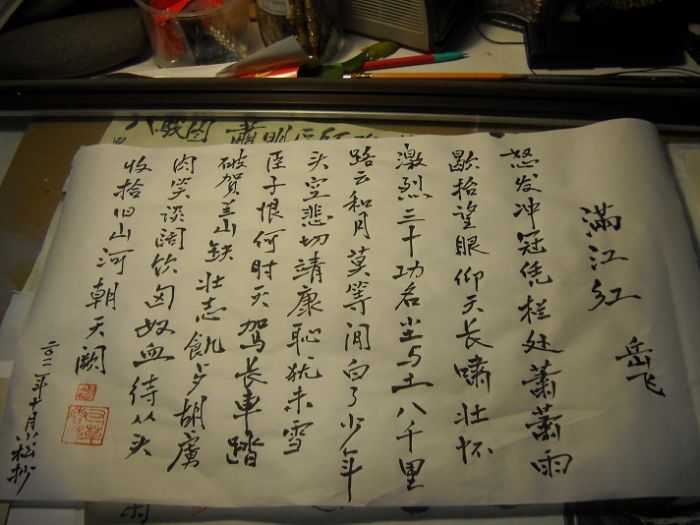 滿江红
岳飞
怒发冲冠凭栏处萧萧雨
歇抬望眼仰天长啸壮怀
激烈三十功名尘与土八千里
路云和月莫等闲白了少年
头空悲切靖康恥犹未雪
臣子恨何时灭驾长車踏
破贺兰山缺壮志飢歺胡虏
肉笑谈阔饮匈奴血待从头
收拾旧山河朝天阙
二〇一一年十月小松抄